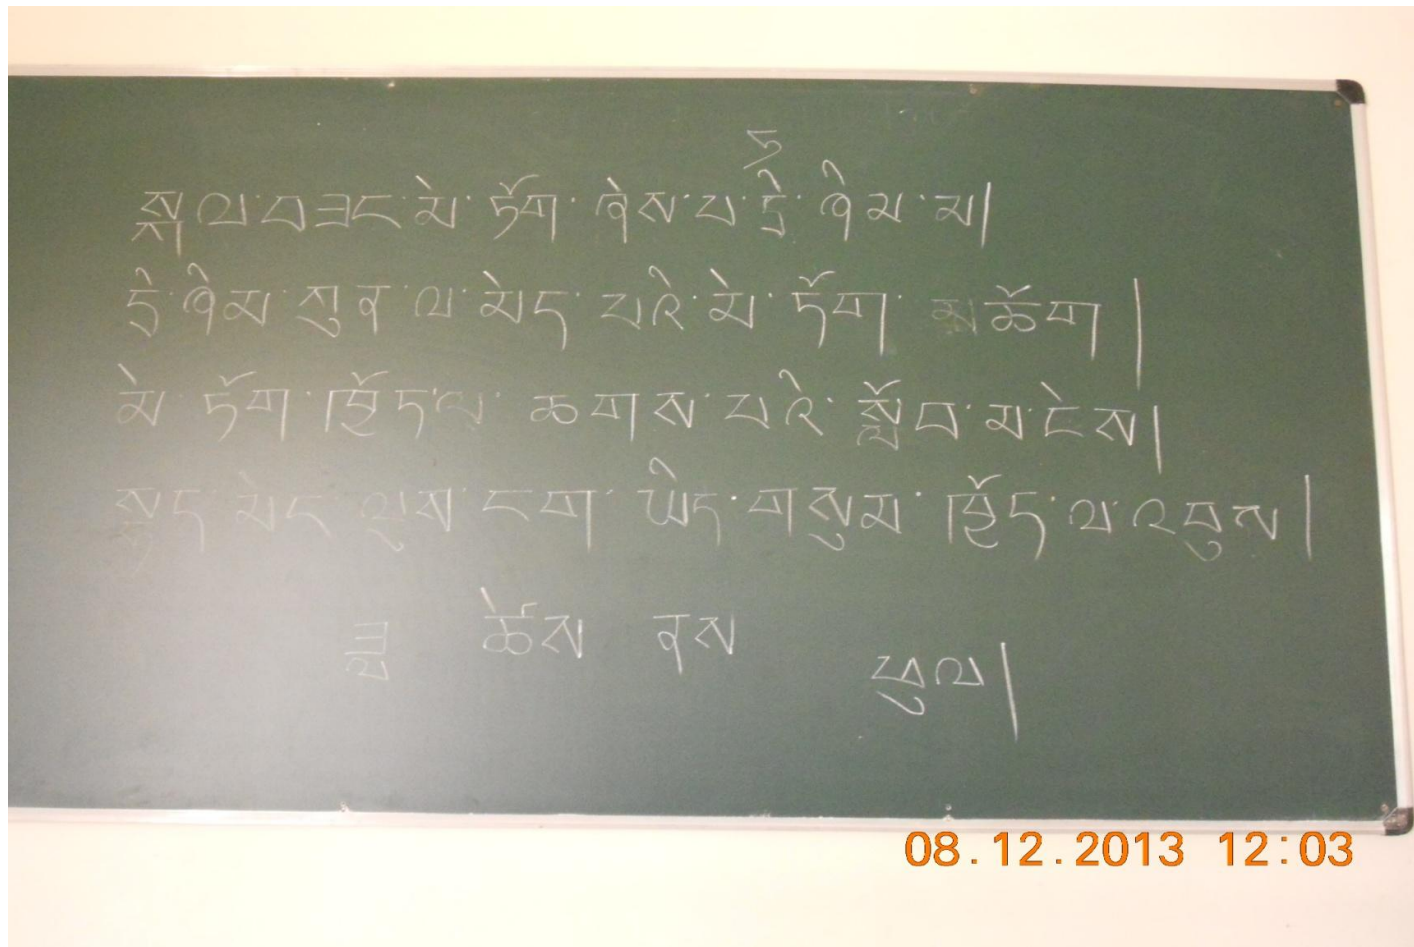 སྐལ་བཟང་མེ་ཏོག་ཞེས་པ་དྲི་ཞིམ་མ།
དྲི་ཞིམ་ཀུན་ལ་མེད་པའི་མེ་ཏོག་མཆོག།
མེ་ཏོག་ཁྱོད་ལ་ཆགས་པའི་སློབ་མ་ངེས།
སྐུད་མེད་ལུས་ངག་ཡིད་གསུམ་ཁྱོད་ལ་འབུས།
ཟླ ཆོས ནས ཕུལ།
08.12.2013 12:03